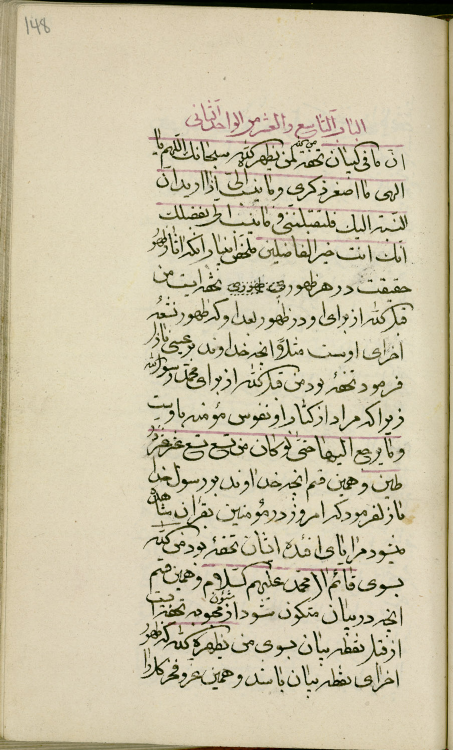 148
الباب التاسع والعشر من الواحد الثانی
ان ما فی البیان تحفة من الله لمن یظهره الله سبحانک اللهم یا
الهی ما اصغر ذکری وما ینسب الی اذا ارید ان
انسبه الیک فلتقبلنی وما ینسب الی بفضلک
انک انت خیر الفاضلین ملخص این باب انکه انچه از ظهور
حقیقت در هر ظهوری تحفه ایست من
قبل الله از برای او در ظهور بعد او که ظهور نشئه
اخرای اوست مثلا انچه خداوند بر عیسی نازل
فرمود تحفه بود من قبل الله از برای محمد رسول الله
زیرا که مراد از کتاب او نفوس مؤمنه باوست
وما یرجع الیها حتی لو کان من تسع تسع عشر عشر
طین وهمین قسم انچه خداوند بر رسول خدا
نازل فرمود که امروز در مؤمنین بقران مشاهده
میشود مرایای افئده ایشان تحفه بود من الله
بسوی قائم ال محمد علیهم السلام وهمین قسم
انچه در بیان متکون شود از شئون محبوبه تحفه ایست
از قبل نقطه بیان بسوی من یظهره الله که ظهور
اخرای نقطه بیان باشد وهمین عز وفخر کل را